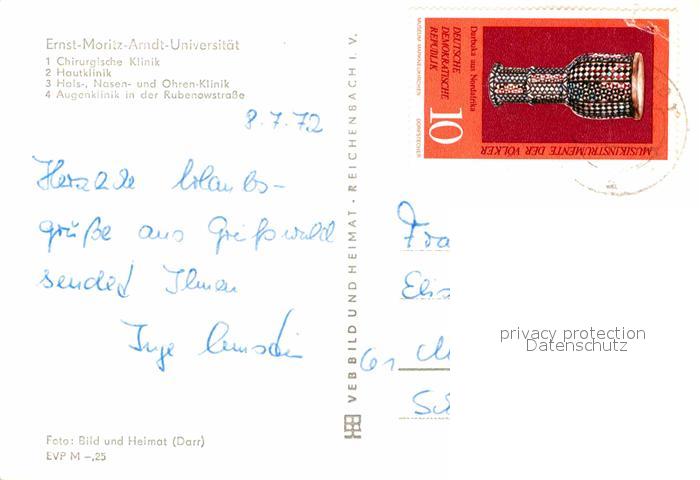 Ernst-Moritz-Arndt-Universität
1 Chirurgische Klinik
2 Hautklinik
3 Hals-, Nasen- und Ohren-Klinik
4 Augenklinik in der Rubenowstraße
8.7.72
Herzliche Urlaubs-
grüße aus Greifswald
sendet Ihnen
Inge
Foto: Bild und Heimat (Darr)
EVP M -,25
VEB BILD UND HEIMAT · REICHENBACH I. V.
Darbuka aus Nordafrika
DEUTSCHE
DEMOKRATISCHE
REPUBLIK
10
MUSIKINSTRUMENTE DER VÖLKER
MUSEUM MARKNEUKIRCHEN
GÖRITZSCHER
Fra
Elis
61 M
Sch
privacy protection
Datenschutz